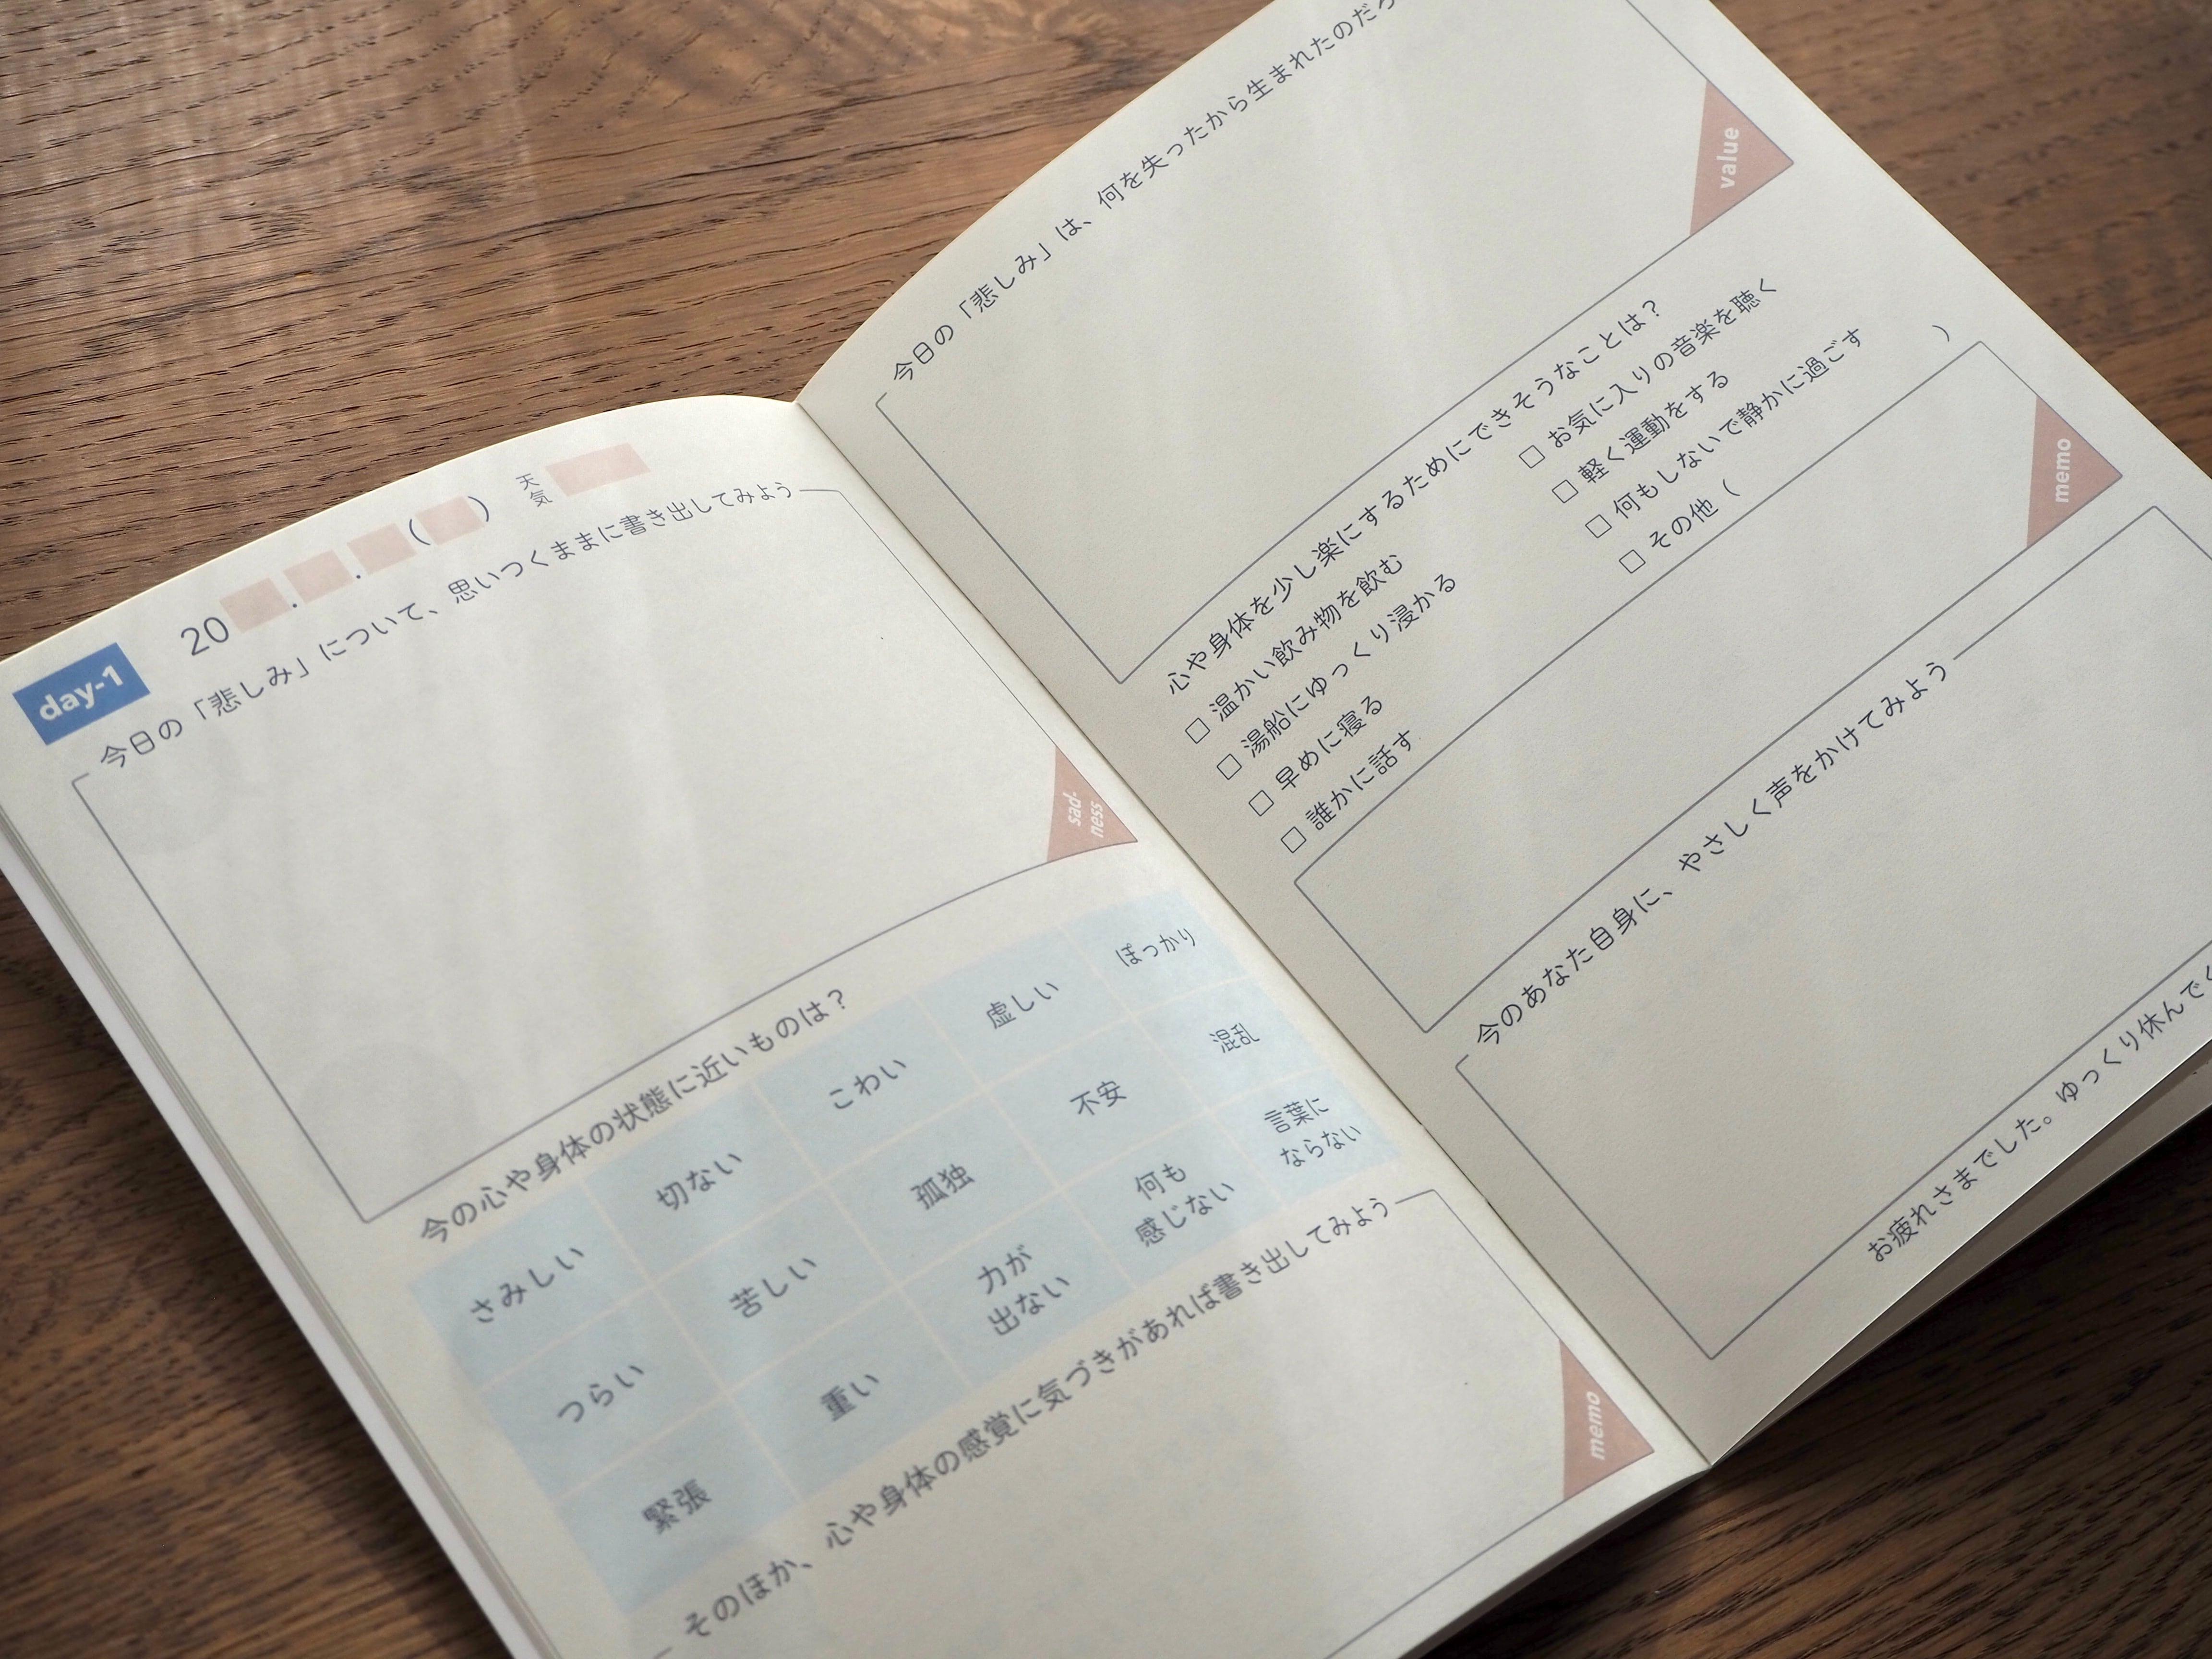 day-1
20 . . ( ) 天気
今日の「悲しみ」について、思いつくままに書き出してみよう
sad-
ness
今の心や身体の状態に近いものは？
さみしい 切ない こわい 虚しい ぽっかり
つらい 苦しい 孤独 不安 混乱
緊張 重い 力が
出ない 何も
感じない 言葉に
ならない
そのほか、心や身体の感覚に気づきがあれば書き出してみよう
memo
今日の「悲しみ」は、何を失ったから生まれたのだろ
value
心や身体を少し楽にするためにできそうなことは？
□ 温かい飲み物を飲む □ お気に入りの音楽を聴く
□ 湯船にゆっくり浸かる □ 軽く運動をする
□ 早めに寝る □ 何もしないで静かに過ごす
□ 誰かに話す □ その他 ( )
memo
今のあなた自身に、やさしく声をかけてみよう
お疲れさまでした。ゆっくり休んでく